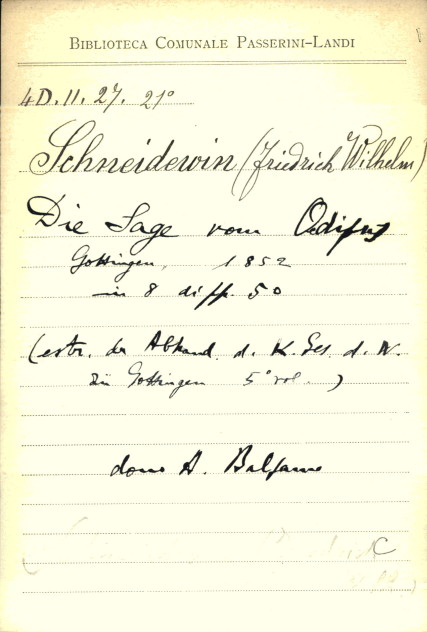 BIBLIOTECA COMUNALE PASSERINI-LANDI
4D.11.27. 21°
Schneidewin (Friedrich Wilhelm)
Die Sage vom Oedipus
Gottingen, 1852
in 8 diff. 50
(estr. da Abhand. d. K. Ges. d. W.
zu Gottingen 5° vol.)
dono A.